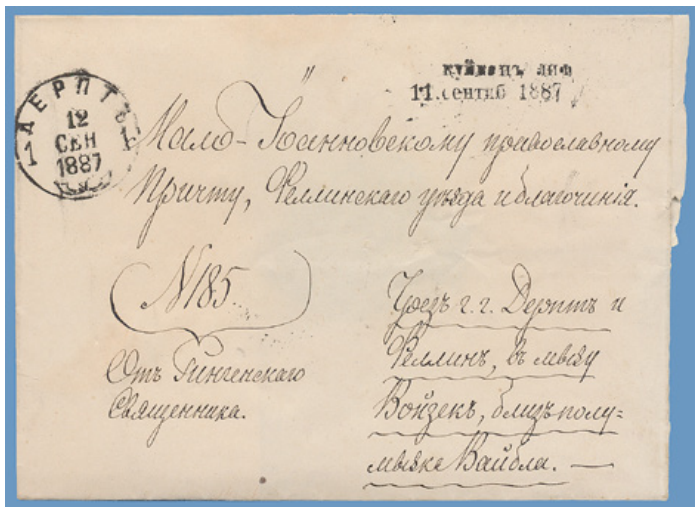 ДЕРПТЪ
12
СЕН
1887
1 1
куйкацъ лиф
11 сентяб 1887
Мало-Іоанновскому православному
Причту, Феллинскаго уѣзда и благочинія.
№ 185.
Отъ Рингенскаго
Священника.
Чрезъ г.г. Дерптъ и
Феллинъ, въ мызу
Войзекъ, близъ полу=
мызка Вайбла. —